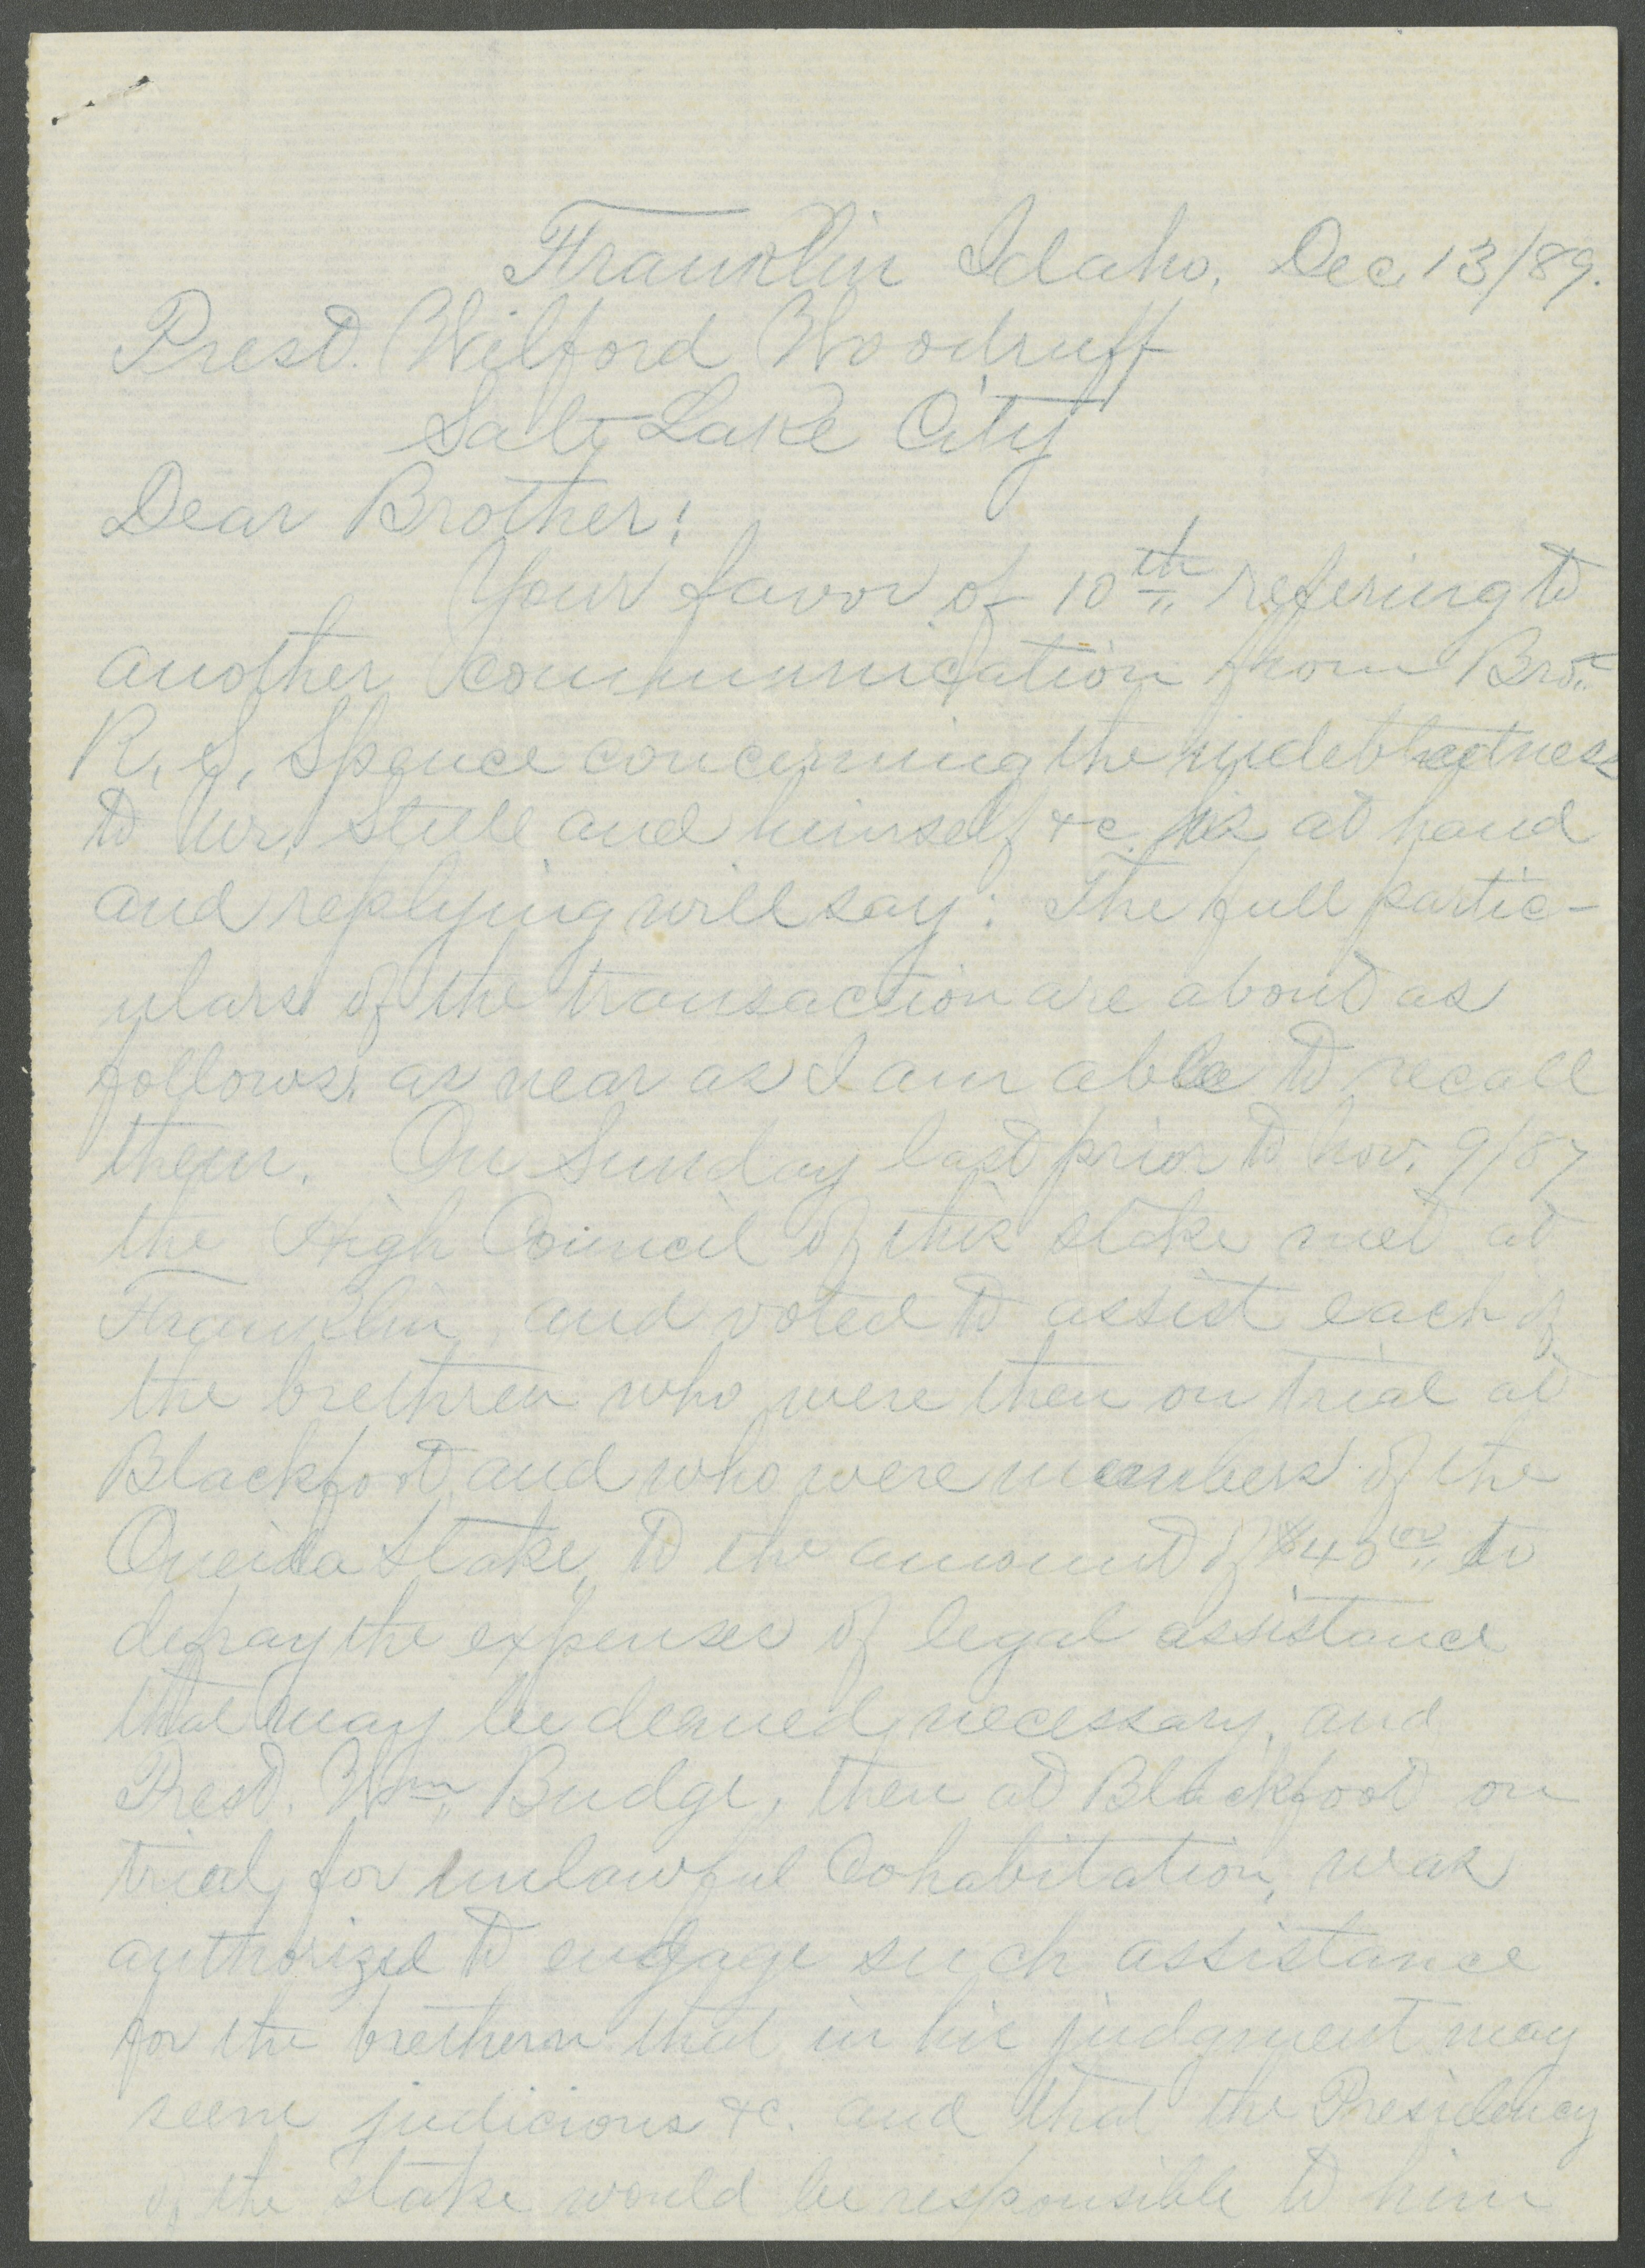 Franklin Idaho, Dec, 13/89.
Prest. Wilford Woodruff
Salt Lake City
Dear Brother;
Your favor of 10th refering to
another communication from Bro.
R. S. Spence concerning the indebtedness
to Mr. Still and himself &c. is at hand
and replying will say: The full partic-
ulars of the transaction are about as
follows, as near as I am able to recall
them. On Sunday last prior to Nov. 9/87
the High Council of this stake met at
Franklin, and voted to assist each of
the brethren who were then on trial at
Blackfoot, and who were members of the
Oneida Stake, to the amount of $40 00 to
defray the expenses of legal assistance
that may be deemed necessary, and
Prest. Wm. Budge, then at Blackfoot on
trial for unlawful Cohabitation, was
authorized to engage such assistance
for the brethern that in his judgment may
seem judicious &c. and that the Presidency
of the stake would be responsible to him